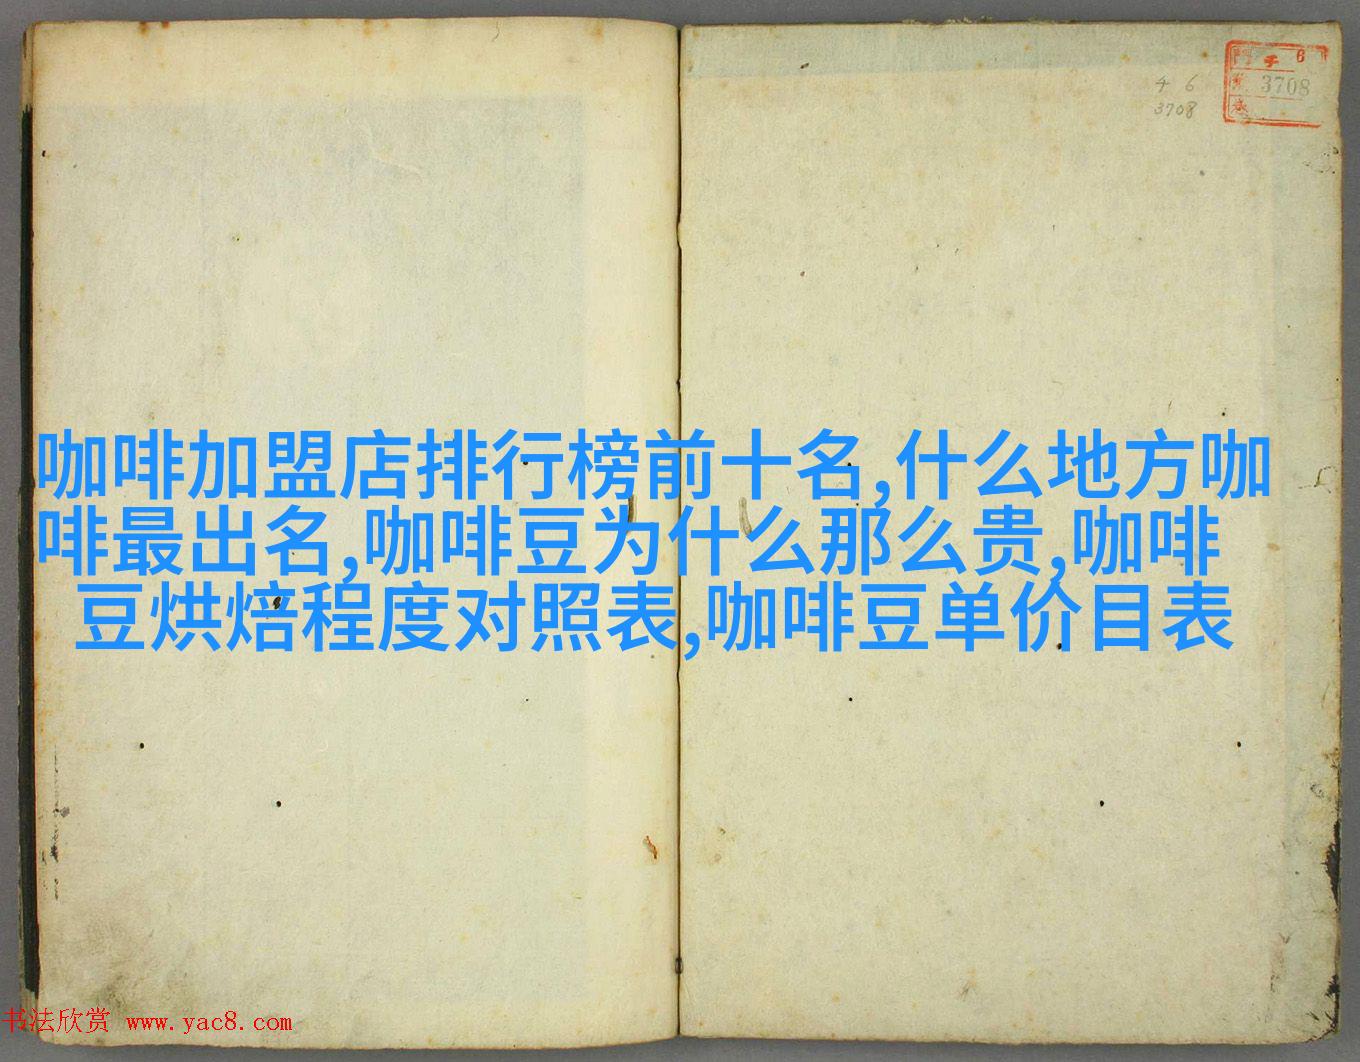 6
3708
4 6
3708
咖啡加盟店排行榜前十名,什么地方咖
啡最出名,咖啡豆为什么那么贵,咖啡
豆烘焙程度对照表,咖啡豆单价目表
书法欣赏 www.yac8.com